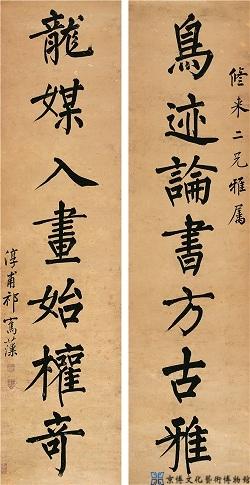 脩来二兄雅屬
鳥迹論書方古雅
龍媒入畫始權奇
淳甫祁寯藻
京博文化藝術博物館